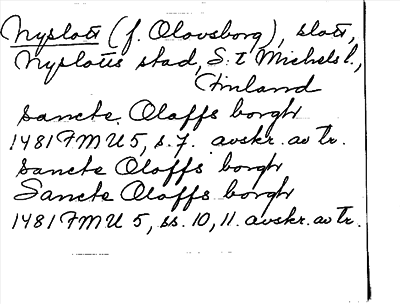 Nyslott (f. Olovsborg), slott,
Nyslotts stad, S:t Michels l.,
Finland
Sancte Olaffs borgh
1481 FMU 5, s. 7. avskr. av tr.
Sancte Olaffs borgh
Sancte Olaffs borgh
1481 FMU 5, ss. 10, 11. avskr. av tr.